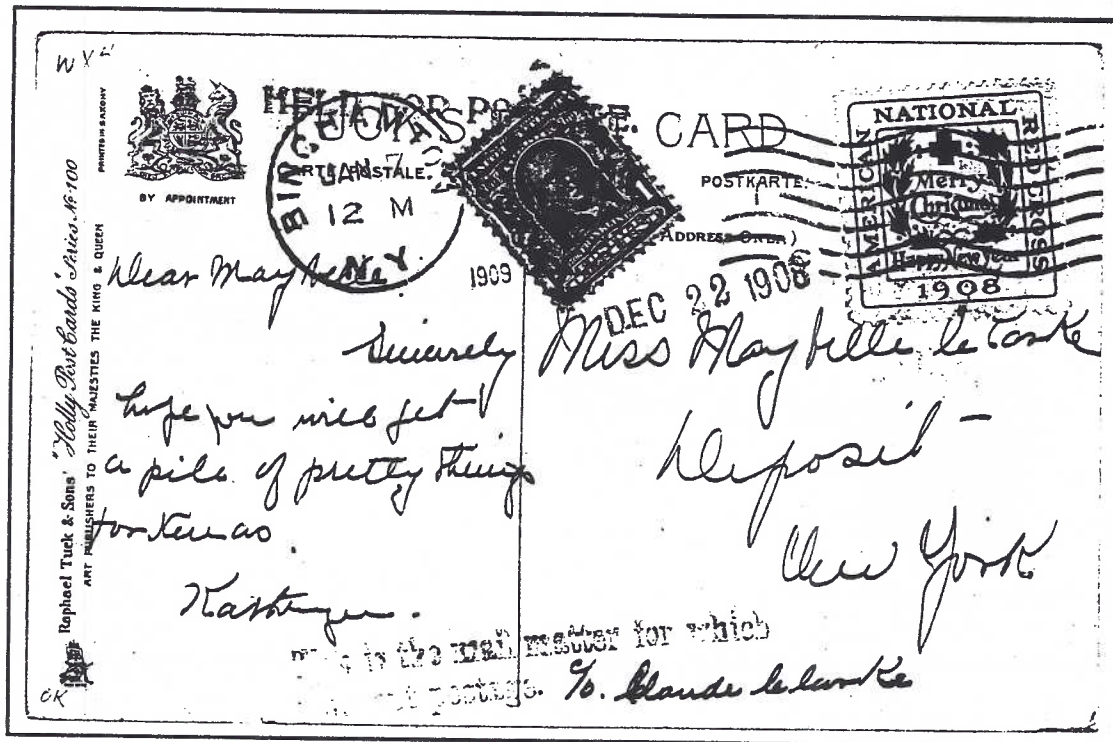 PRINTED IN SAXONY
BY APPOINTMENT
Raphael Tuck & Sons' "Holly Post Cards" Series No 100
ART PUBLISHERS TO THEIR MAJESTIES THE KING & QUEEN
OK
HELD FOR POSTAGE.
CARD
CARTE POSTALE.
POSTKARTE.
(ADDRESS ONLY)
BINGHAMTON
JAN 7
12 M
N.Y.
1909
DEC 22 1908
AMERICAN NATIONAL RED CROSS
Merry
Christmas
Happy New Year
1908
Dear Maybelle
Sincerely
hope you will get
a pile of pretty things
for Xmas
Miss Maybelle
Deposit
New York
c/o. Claude
is the mail matter for which
postage.